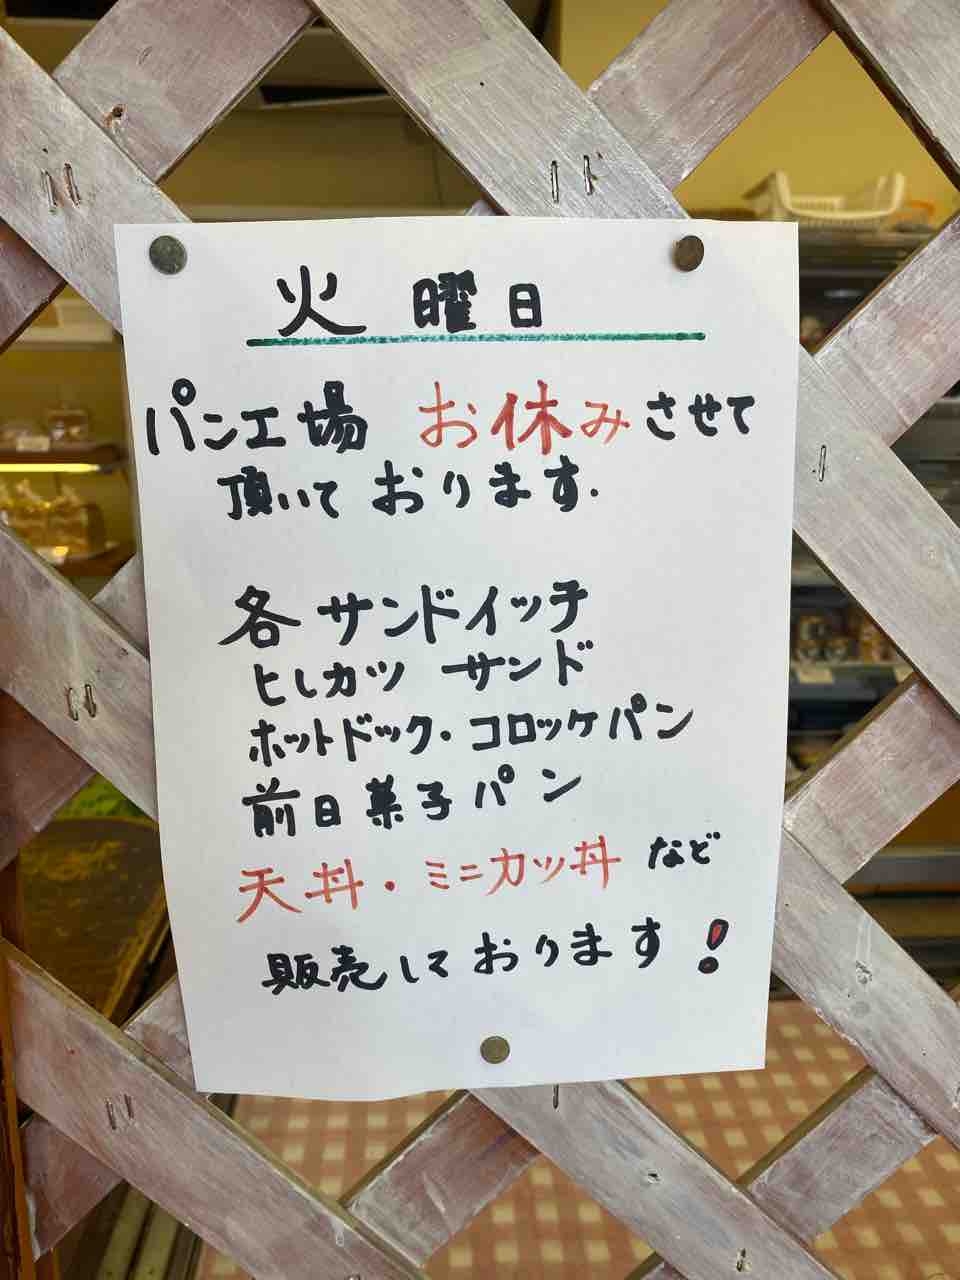 火曜日
パン工場 お休みさせて
頂いて おります.
各サンドイッチ
ヒレカツ サンド
ホットドック・コロッケパン
前日菓子パン
天丼・ミニカツ丼 など
販売しております!